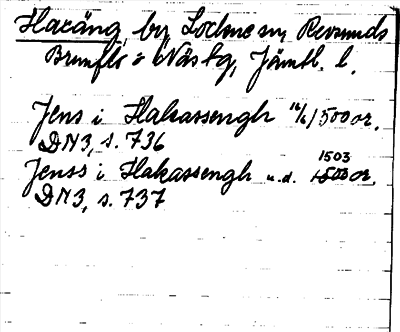 Haxäng by Lockne sn, Revsunds
Brunflo o Näs tg, Jämtl. l.
Jens i Hakassengh 16/6 1500 or.
DN3, s. 736
Jenss i Hakassengh u.d. 1503 or.
DN3, s. 737